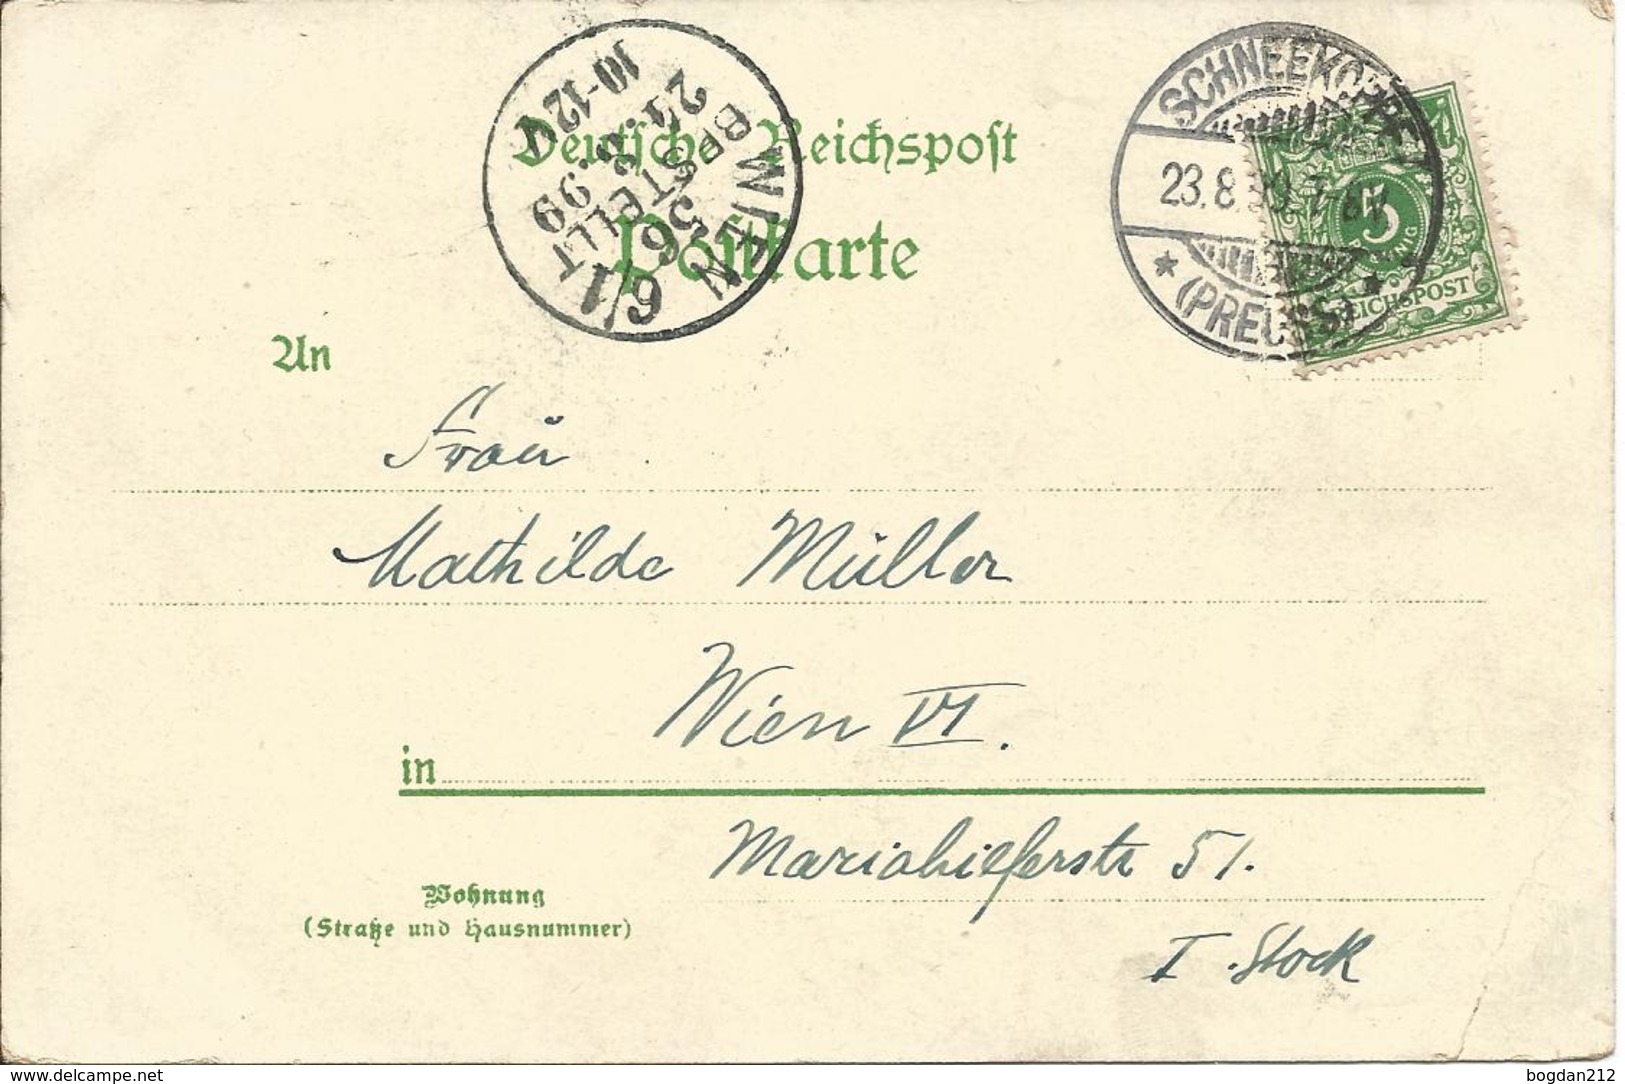 Deutsche Reichspost
Postkarte
WIEN 6/1
56
BESTELLT
24. 8. 99
10-12V
SCHNEEKOPPE
23.8.99. 7-8V.
* (PREUSS) *
5
REICHSPOST
An
Frau
Mathilde Müller
Wien VI.
in
Mariahilferstr 51.
Wohnung
(Straße und Hausnummer)
I. Stock
www.delcampe.net
bogdan212